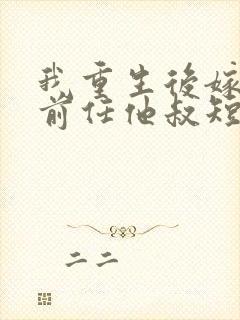 我重生后嫁
前任他叔短
二二